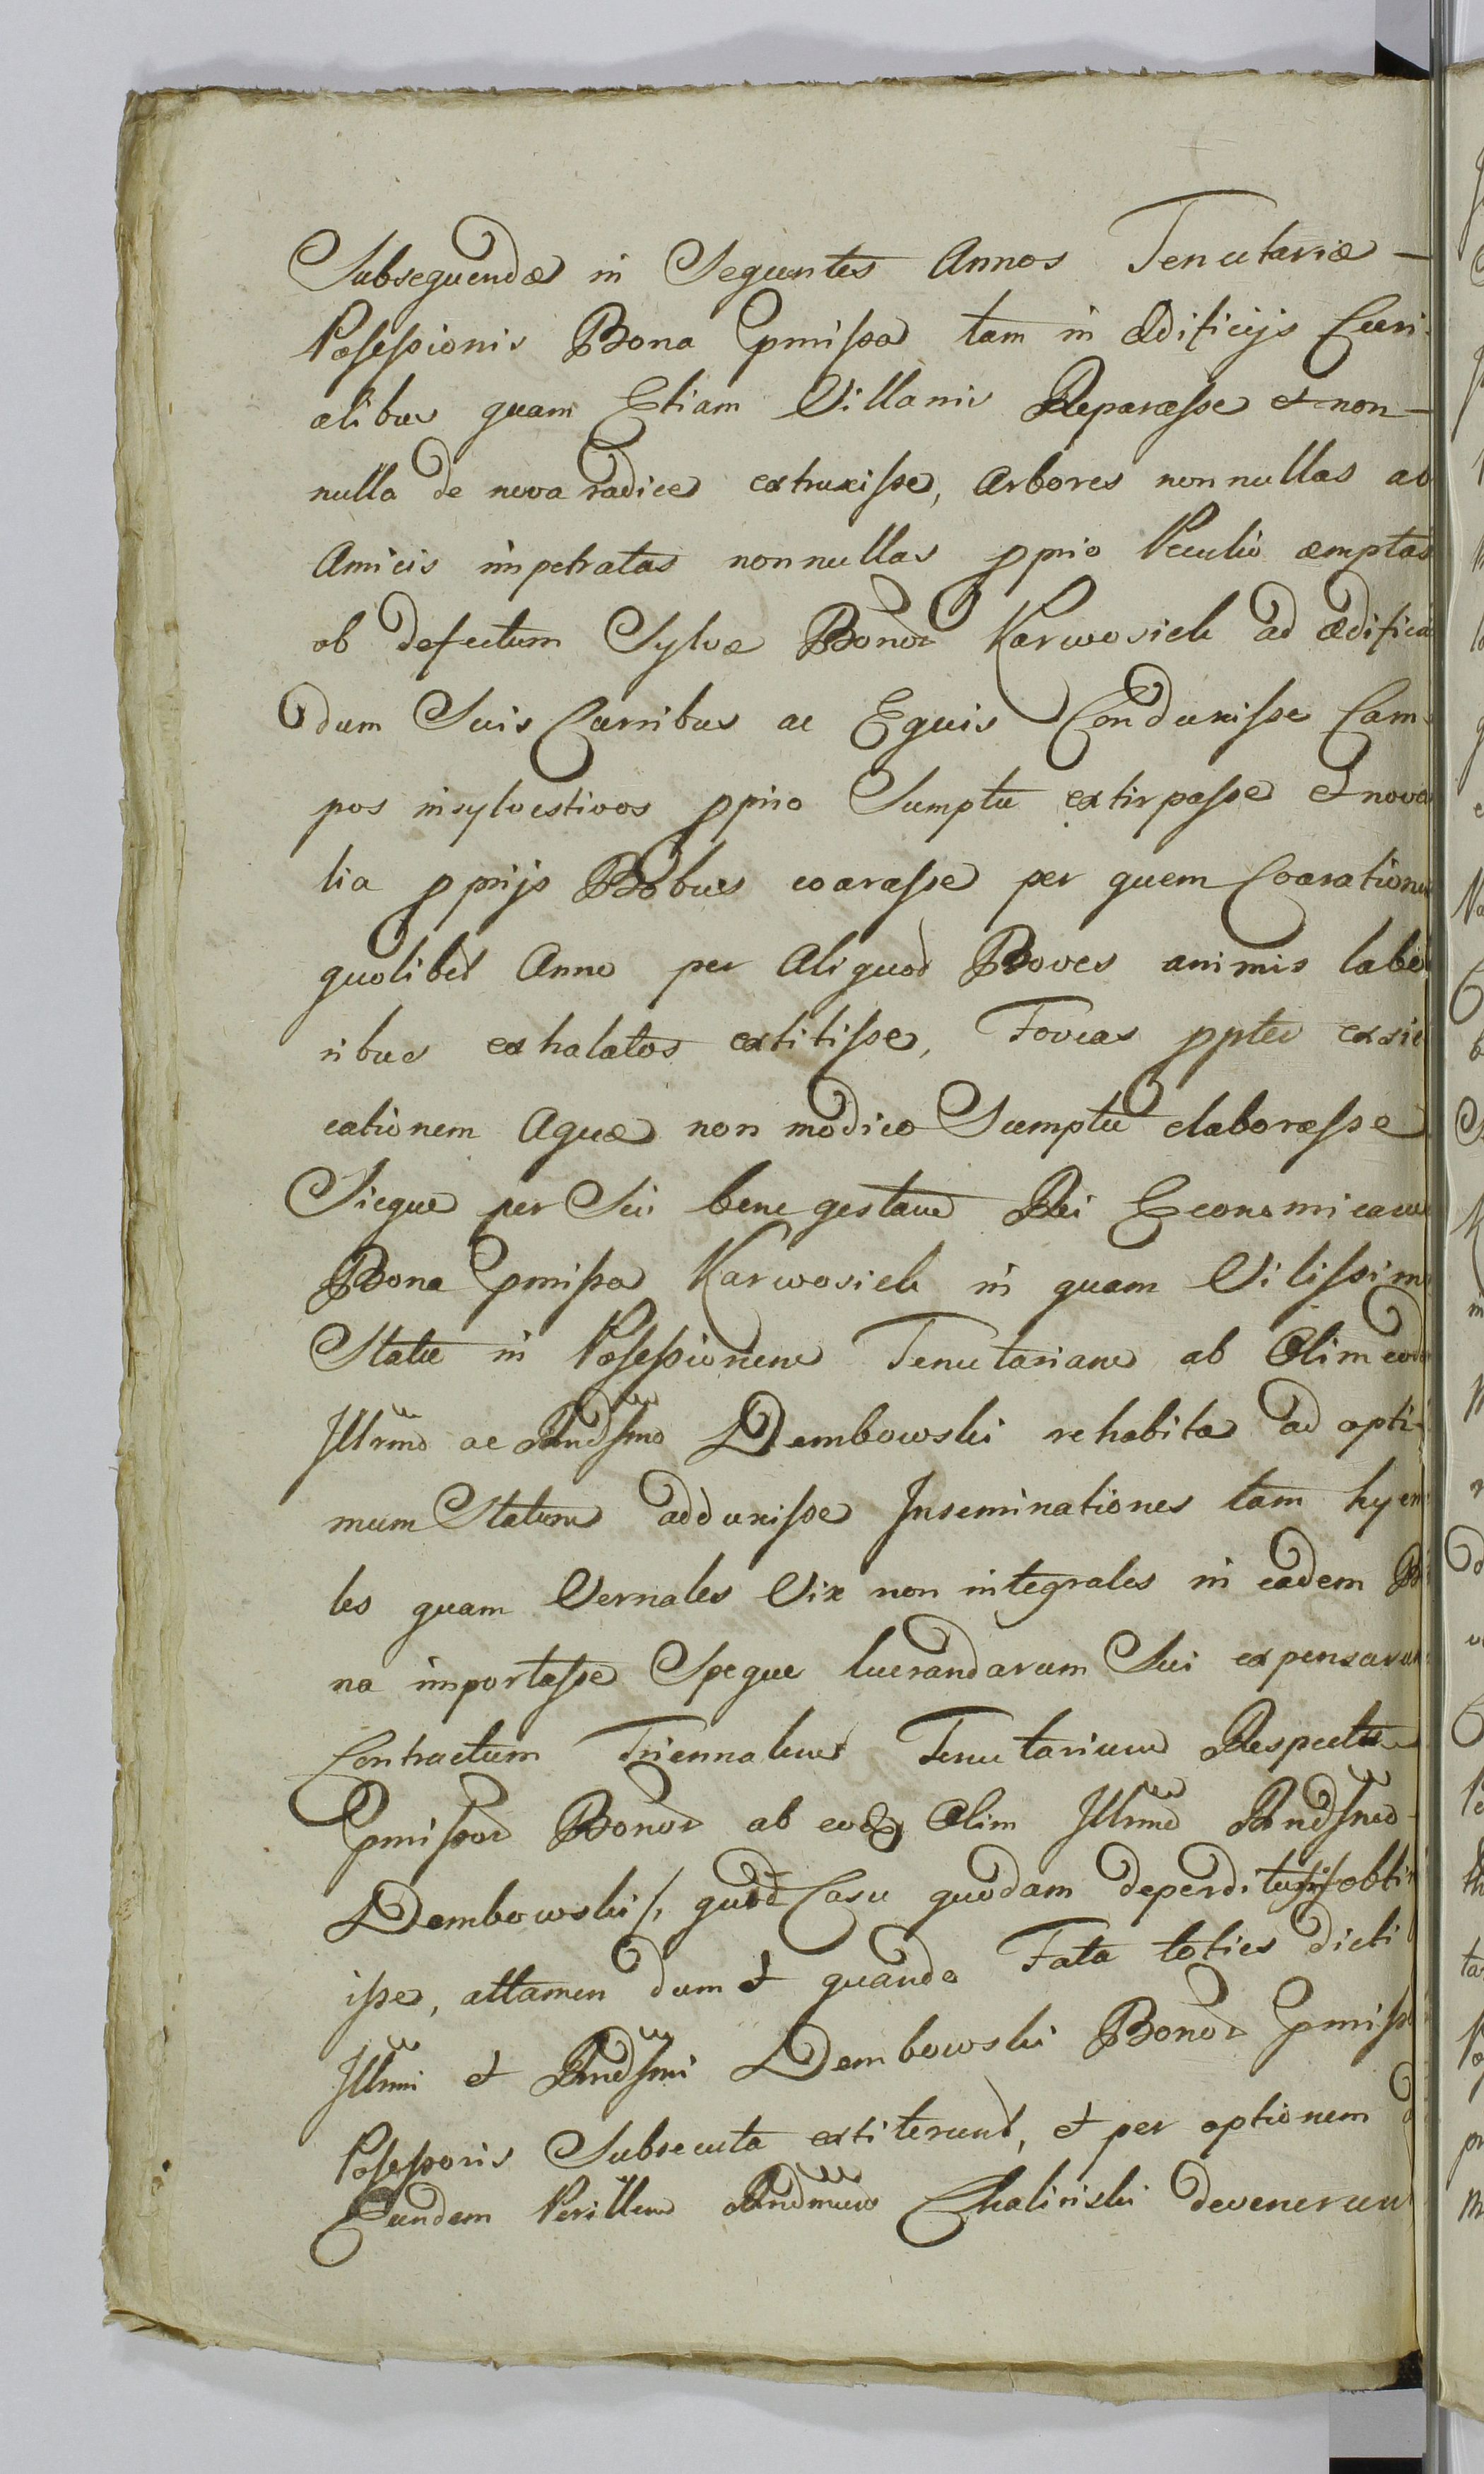 Subsequendæ in Sequentes Annos Tenutariæ —
Possessionis Bona pmissa tam in Ædificijs Curi-
alibus quam Etiam Villanis Reparasse et non-
nulla de nova radice extruxisse, Arbores nonnullas ab
Amicis impetratas nonnullas pprio Peculio æmptas
ob defectum Sylvæ Bonor Karwosieck ad ædifica
dum Suis Curribus ac Equis Conduxisse Cam-
pos insylvestivos pprio Sumptu extirpasse et nova
lia pprijs Bobus coarasse per quem Coarationem
quolibet Anno per Aliquod Boves animis labo
ribus exhalatos extitisse, Foveas ppter exsic
cationem Aquæ non modico Sumptu elaborasse
Sicque per Sui bene gestam Rei Economicam
Bona pmissa Karwosieck in quam Vilissimo
Statu in Possessionem Tenutariam ab Olim eod
Illrmo ac Rndssmo Dembowski rehabita ad opti-
mum Statum adduxisse Inseminationes tam hyema
les quam Vernales Vix non integrales in eadem Bo
na importasse Speque lucrandarum Sui expensarum
Contractum Triennalem Tenutarium Respectu
pmissor Bonor ab eodem Olim Illrmo Rndssmo
Dembowski /, quod Casu quodam deperditus obtin
isse, attamen dum et quando Fata toties dicti
Illrmi et Rndssmi Dembowski Bonor pmiss
Possessoris Subsecuta extiterunt, et per optionem
Eundem Perillem Rndmum Chalinski devenerunt